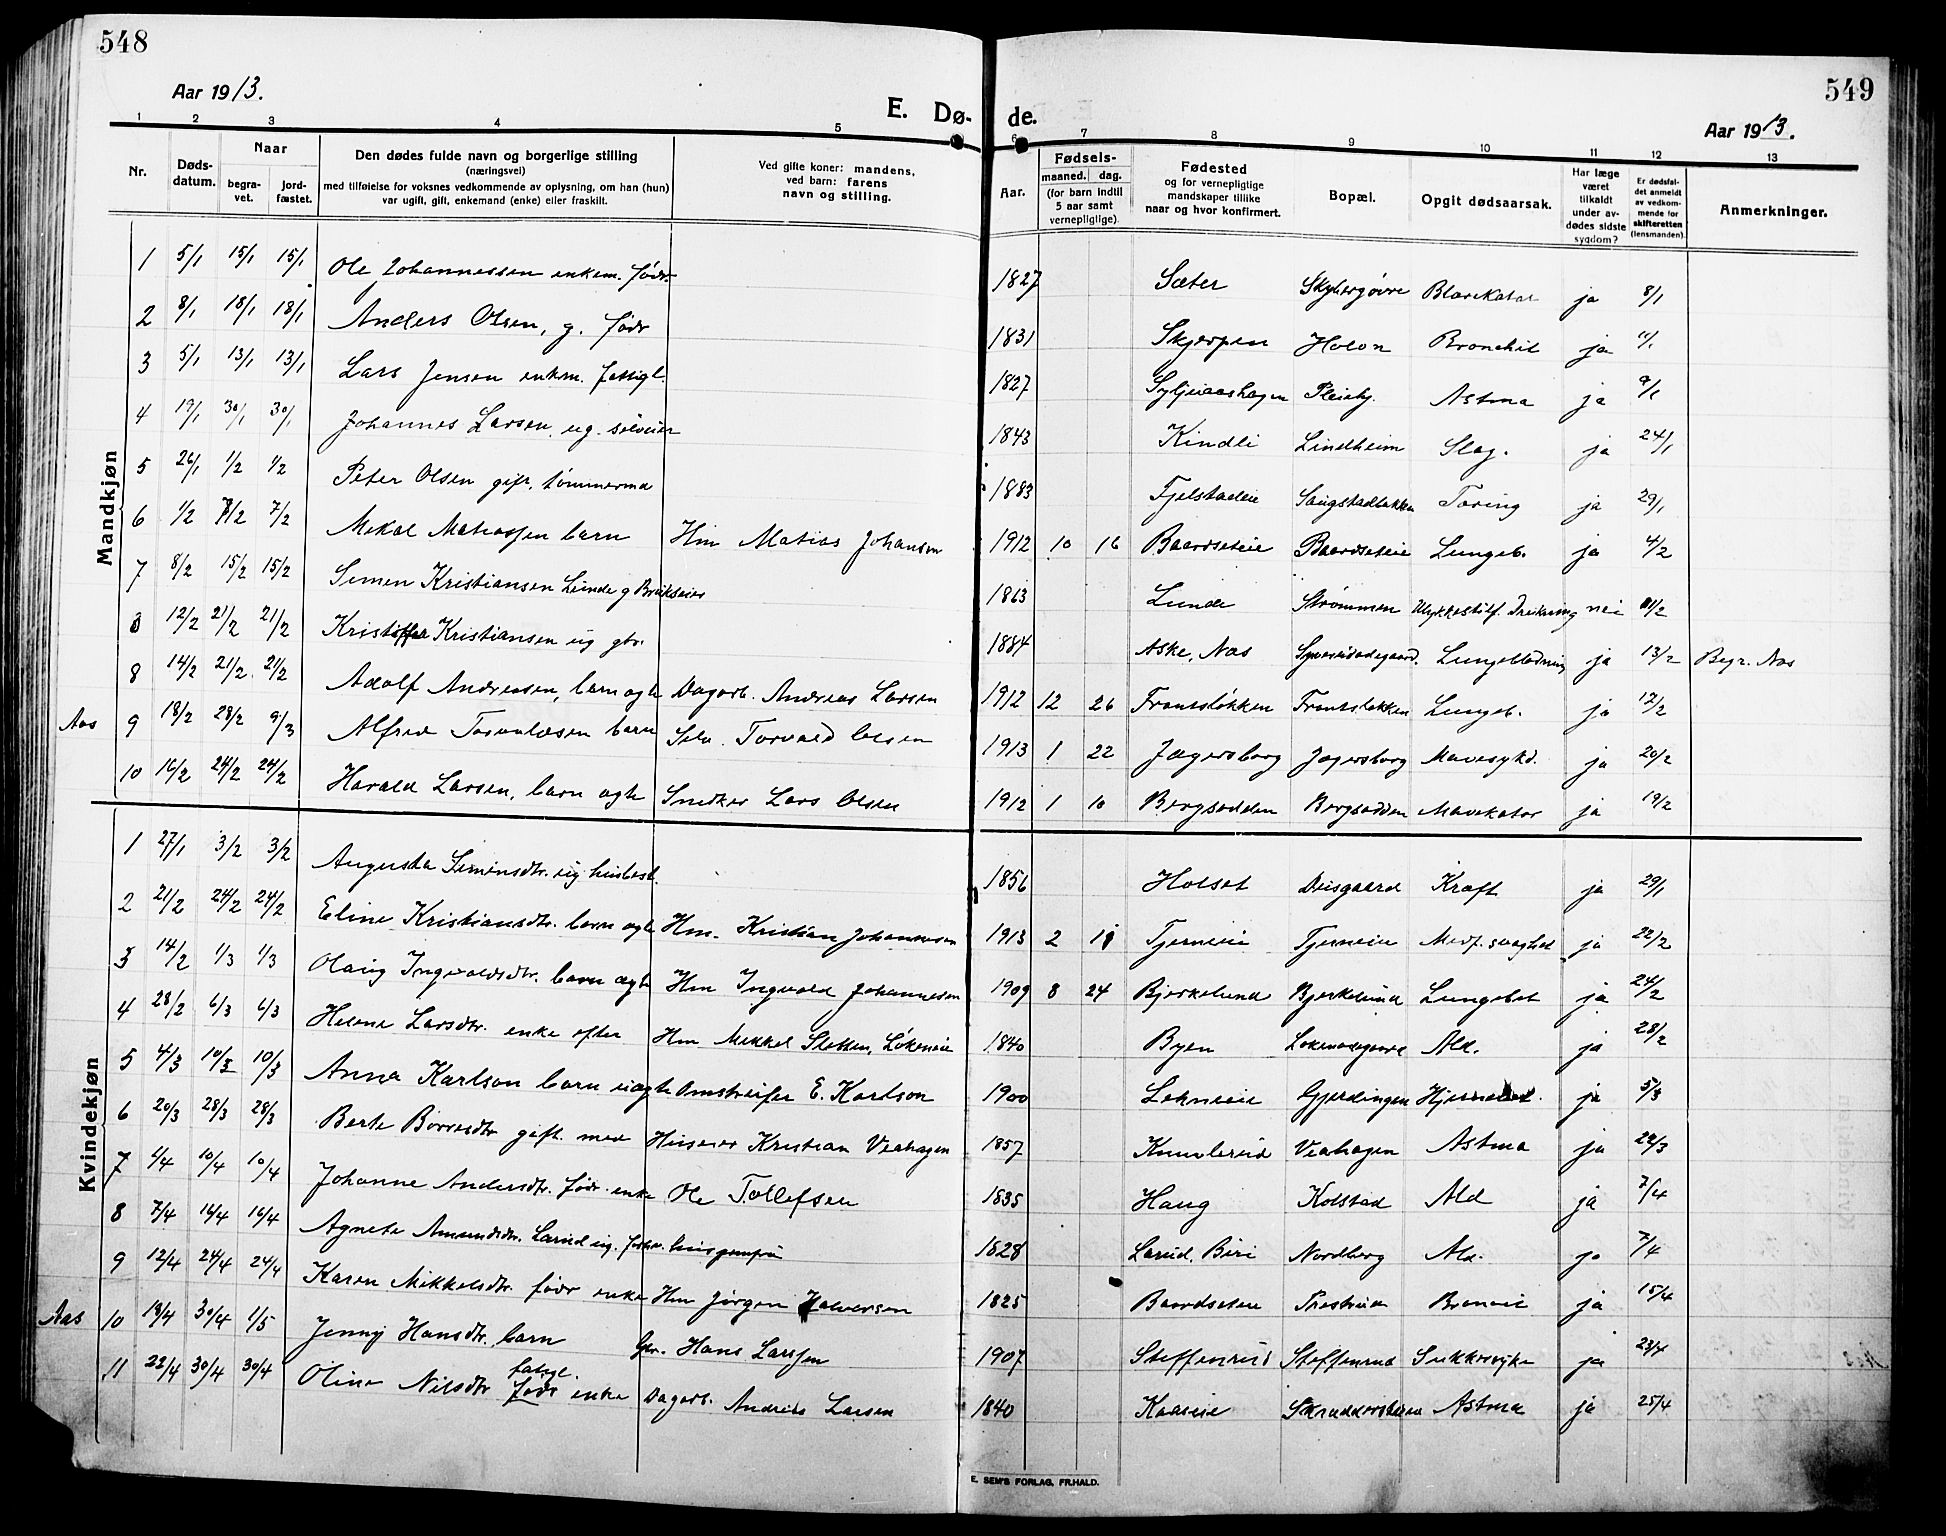 548
549
Aar 1913.
E. Dø-
de.
Aar 1913.
1 2 3 4 5 6 7 8 9 10 11 12 13
Nr.
Døds-
datum.
Naar
begra-
vet.
jord-
fæstet.
Den dødes fulde navn og borgerlige stilling
(næringsvei)
med tilføielse for voksnes vedkommende av oplysning, om han (hun)
var ugift, gift, enkemand (enke) eller fraskilt.
Ved gifte koner: mandens,
ved barn: farens
navn og stilling.
Aar.
Fødsels-
maaned. dag.
(for barn indtil
5 aar samt
vernepligtige).
Fødested
og for vernepligtige
mandskaper tillike
naar og hvor konfirmert.
Bopæl.
Opgit dødsaarsak.
Har læge
været
tilkaldt
under av-
dødes sidste
sygdom?
Er dødsfal-
det anmeldt
av vedkom-
mende for
skifteretten
(lensmanden).
Anmerkninger.
Mandkjøn
1 5/1 15/1 15/1 Ole Johannessen enkem. födr. 1827 Sæter Blærekatar ja 8/1
2 8/1 18/1 18/1 Anders Olsen, g. födr 1831 Skjerpen Holon Bronchit ja 11/1
3 5/1 13/1 13/1 Lars Jensen enkm. fattigl. 1827 Pleiehj. Astma ja 9/1
4 19/1 30/1 30/1 Johannes Larsen, ug. selveier 1843 Kindli Lindheim Slag. ja 24/1
5 26/1 1/2 1/2 Peter Olsen gift, tömmermd 1883 Fjelstadeie Saugstadløkken Tæring ja 29/1
6 1/2 7/2 7/2 Mikal Matiassen barn Hm Matias Johansen 1912 10 16 Baardseteie Baardseteie Lungeb. ja 4/2
7 8/2 15/2 15/2 Simen Kristiansen Lunde g Brukseier 1863 Lunde Strømmen Ulykkestilf. Drukning nei 11/2
8 12/2 21/2 21/2 Kristoffer Kristiansen ug gbr. 1884 Aske, Næs Lungeblødning ja 13/2 Begr. Næs
8 14/2 21/2 21/2 Adolf Andreasen, barn ægte Dagarb. Andreas Larsen 1912 12 26 Frantsløkken Frantsløkken Lungeb. ja 17/2
Aas 9 18/2 28/2 9/3 Alfred Torvaldsen barn Selv. Torvald Olsen 1913 1 22 Jægersborg Jægersborg Mavesykd. ja 20/2
10 16/2 24/2 24/2 Harald Larsen, barn ægte Snedker Lars Olsen 1912 1 10 Bergsodden Bergsodden Mavekatar ja 19/2
Kvindekjøn
1 27/1 3/2 3/2 Augusta Simensdtr. ug husbest. 1856 Holset Diisgaard Kræft ja 29/1
2 21/2 24/2 24/2 Eline Kristiansdtr. barn ægte Hm. Kristian Johannesen 1913 2 11 Tjerneie Tjerneie Medf. svaghed ja 22/2
3 14/2 1/3 1/3 Olaug Ingvaldsdtr. barn ægte Hm Ingvald Johannesen 1909 8 24 Bjerkelund Bjerkelund Lungebet ja 24/2
4 28/2 6/3 6/3 Helene Larsdtr. enke efter Hm Mikkel Sletten, Løkeneie 1840 Byen Ald. ja 28/2
5 4/3 10/3 10/3 Anna Karlson barn uægte Omstreifer E. Karlson 1900 Lekneie Gjerdingen ja 5/3
6 20/3 28/3 28/3 Berte Börresdtr gift. med Huseier Kristian Veahagen 1857 Knuvlerud Veahagen Astma ja 22/3
7 4/4 10/4 10/4 Johanne Andersdtr. födr. enke Ole Tollefsen 1835 Haug Kolstad Ald ja 7/4
8 7/4 16/4 16/4 Agnete Amundsdtr. Larud ug. husjomfru 1828 Larud, Biri Nordberg Ald. ja 7/4
9 12/4 24/4 24/4 Karen Mikkelsdtr. födr enke Hm Jörgen Halvorsen 1825 Baardseteie Prestrud ja 15/4
Aas 10 19/4 30/4 1/5 Jenny Hansdtr. barn Gbr. Hans Larssen 1907 Steffenrud Steffenrud Sukkersyke ja 23/4
11 22/4 30/4 30/4 Oline Nilsdtr fattigl. födr enke Dagarb. Andreas Larsen 1840 Kaaseie Astma ja 25/4
E. SEM'S FORLAG, FR.HALD.